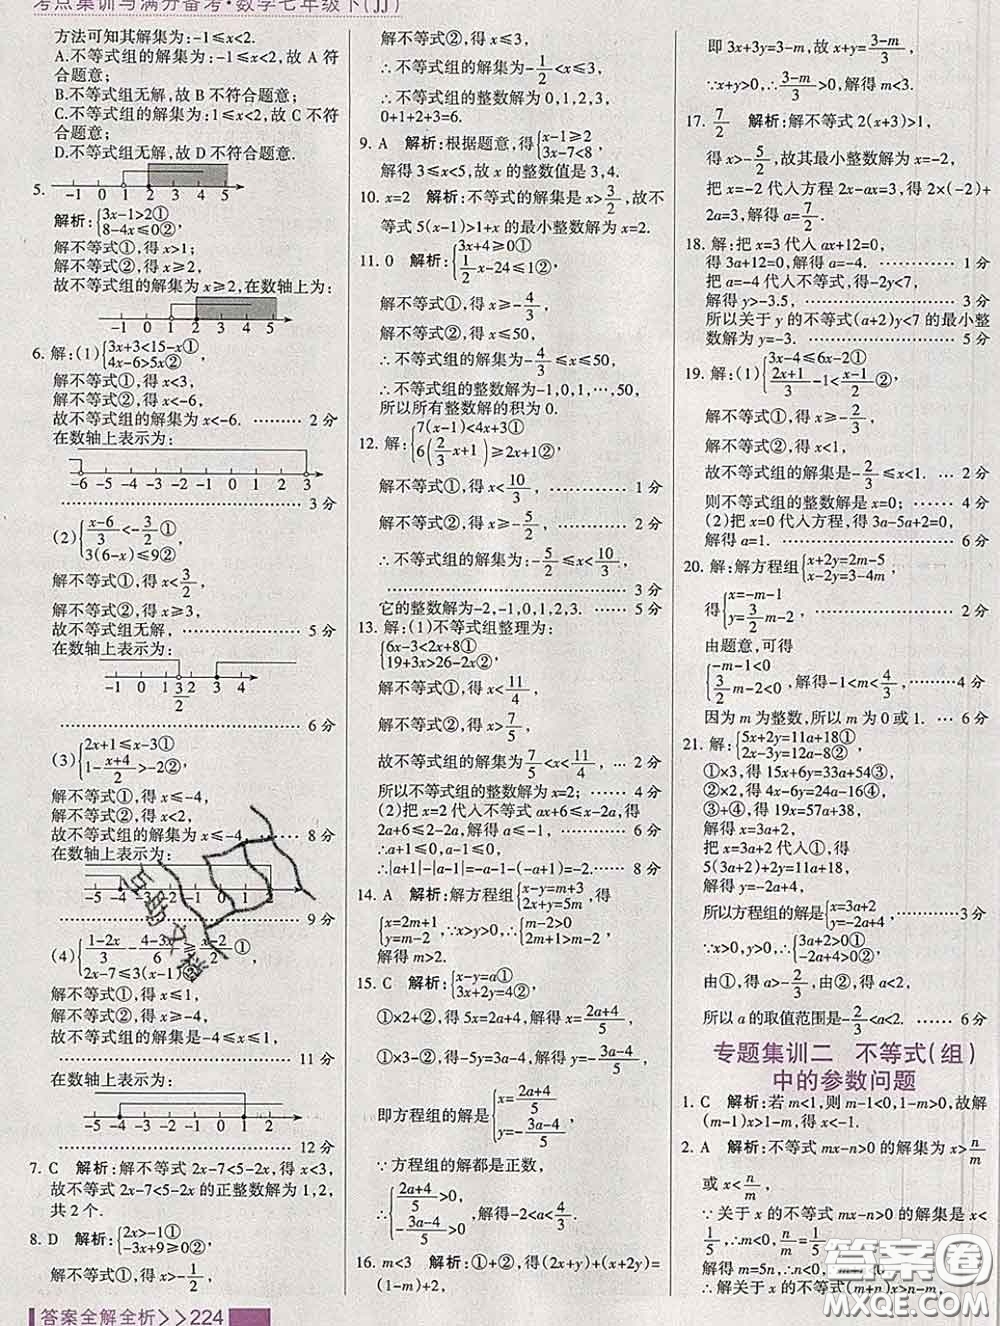 考点集训与满分备考·数学七年级下(JJ)
方法可知其解集为:-1≤x<2.
A.不等式组的解集为:-1≤x<2,故 A 符
合题意;
B.不等式组无解,故 B 不符合题意;
C.不等式组的解集为:1≤x<2,故 C 不符
合题意;
D.不等式组无解,故 D 不符合题意.
5. -1 0 1 2 3 4 5
解析:{3x-1>2①
8-4x≤0②,
解不等式①,得 x>1;
解不等式②,得 x≥2,
故不等式组的解集为 x≥2,在数轴上为:
-1 0 1 2 3 4 5
6. 解:(1){3x+3<15-x①
4x-6>5x②,
解不等式①,得 x<3,
解不等式②,得 x<-6,
故不等式组的解集为 x<-6. ……… 2 分
在数轴上表示为:
-6 -5 -4 -3 -2 -1 0 1 2 3
……… 3 分
(2){(x-6)/3<-3/2①
3(6-x)≤9②,
解不等式①,得 x<3/2,
解不等式②,得 x≥3,
故不等式组无解, ……… 5 分
在数轴上表示为:
-1 0 1 3/2 2 3 4
……… 6 分
(3){2x+1≤x-3①
1-(x+4)/2>-2②,
解不等式①,得 x≤-4,
解不等式②,得 x<2,
故不等式组的解集为 x≤-4, ……… 8 分
在数轴上表示为:
-5 -4 -3 -2 -1 0 1 2
……… 9 分
(4){(1-2x)/3-(4-3x)/6≥(x-2)/2①
2x-7≤3(x-1)②,
解不等式①,得 x≤1,
解不等式②,得 x≥-4,
故不等式组的解集是-4≤x≤1,
……… 11 分
在数轴上表示为:
-5 -4 -3 -2 -1 0 1 2 3
……… 12 分
7. C 解析:解不等式 2x-7<5-2x,得 x<3,
故不等式 2x-7<5-2x 的正整数解为 1,2,
共 2 个.
8. D 解析:{2x>-1①
-3x+9≥0②,
解不等式①,得 x>-1/2,
解不等式②,得 x≤3,
∴不等式组的解集为-1/2<x≤3,
∴不等式组的整数解为 0,1,2,3,
0+1+2+3=6.
9. A 解析:根据题意,得{x-1≥2
3x-7<8,
解得 3≤x<5,故 x 的整数值是 3,4.
10. x=2 解析:不等式的解集是 x>3/2,故不
等式 5(x-1)>1+x 的最小整数解为 x=2.
11. 0 解析:{3x+4≥0①
1/2x-24≤1②,
解不等式①,得 x≥-4/3,
解不等式②,得 x≤50,
∴不等式组的解集为-4/3≤x≤50,
∴不等式组的整数解为-1,0,1,…,50,
所以所有整数解的积为 0.
12. 解:{7(x-1)<4x+3①
6(2/3x+1)≥2x+1②,
解不等式①,得 x<10/3, ……… 1 分
解不等式②,得 x≥-5/2, ……… 2 分
∴不等式组的解集为:-5/2≤x<10/3,
……… 3 分
它的整数解为-2,-1,0,1,2,3. …… 5 分
13. 解:(1)不等式组整理为:
{6x-3<2x+8①
19+3x>26-2x②,
解不等式①,得 x<11/4,
解不等式②,得 x>7/5,
故不等式组的解集为7/5<x<11/4, … 2 分
所以不等式组的整数解为 x=2; …… 4 分
(2)把 x=2 代入不等式 ax+6≤x-2a,得
2a+6≤2-2a,解得 a≤-1, ……… 6 分
∴a+1≤0,a-1<0,
∴|a+1|-|a-1|=-a-1-(-a+1)=-2.
……… 8 分
14. A 解析:解方程组{x-y=m+3
2x+y=5m,得
{x=2m+1
y=m-2,∵x>y>0,∴{2m+1>m-2
m-2>0,
解得 m>2.
15. C 解析:{x-y=a①
3x+2y=4②,
①×2+②,得 5x=2a+4,解得 x=(2a+4)/5,
②-①×3,得 5y=4-3a,解得 y=-(3a-4)/5,
即方程组的解是{x=(2a+4)/5
y=-(3a-4)/5,
∵方程组的解都是正数,
∴{(2a+4)/5>0
-(3a-4)/5>0,解得-2<a<4/3.
16. m<3 解析:①+②,得(2x+y)+(x+2y)=
(1-m)+2,
即 3x+3y=3-m,故 x+y=(3-m)/3,
∵x+y>0,∴(3-m)/3>0,解得 m<3.
17. 7/2 解析:解不等式 2(x+3)>1,
得 x>-5/2,故其最小整数解为 x=-2,
把 x=-2 代入方程 2x-ax=3,得 2×(-2)+
2a=3,解得 a=7/2.
18. 解:把 x=3 代入 ax+12=0,
得 3a+12=0,解得 a=-4. ……… 1 分
把 a=-4 代入不等式,得-2y<7,
解得 y>-3.5, ……… 3 分
所以关于 y 的不等式(a+2)y<7 的最小整
数解为 y=-3. ……… 5 分
19. 解:(1){3x-4≤6x-2①
(2x+1)/3-1<(x-1)/2②,
解不等式①,得 x≥-2/3,
解不等式②,得 x<1,
故不等式组的解集是-2/3≤x<1. … 2 分
则不等式组的整数解是 x=0; …… 4 分
(2)把 x=0 代入方程,得 3a-5a+2=0,
解得 a=1. ……… 6 分
20. 解:解方程组{x+2y=2m-5
x-2y=3-4m,
得{x=-m-1
y=3/2m-2, ……… 2 分
由题意,可得
{-m-1<0
3/2m-2<0,解得-1<m<4/3, ……… 4 分
因为 m 为整数,所以 m 为 0 或 1. … 6 分
21. 解:{5x+2y=11a+18①
2x-3y=12a-8②,
①×3,得 15x+6y=33a+54③,
②×2,得 4x-6y=24a-16④,
③+④,得 19x=57a+38,
解得 x=3a+2,
把 x=3a+2 代入①,得
5(3a+2)+2y=11a+18,
解得 y=-2a+4,
所以方程组的解是{x=3a+2
y=-2a+4, ……… 3 分
∵x>0,y>0,∴{3a+2>0①
-2a+4>0②,
由①,得 a>-2/3,由②,得 a<2,
所以 a 的取值范围是-2/3<a<2. …… 6 分
专题集训二 不等式(组)
中的参数问题
1. C 解析:若 m<1,则 m-1<0,1-m>0,故解
(m-1)x>1-m,得 x<-1.
2. A 解析:不等式 mx-n>0 的解集为 x>n/m
或 x<n/m,
∵关于 x 的不等式 mx-n>0 的解集是 x<
1/5,∴m<0,n/m=1/5,
解得 m=5n,∴n<0,
∴解关于 x 的不等式(m+n)x>
答案全解全析>>224
答案圈
MXQE.COM